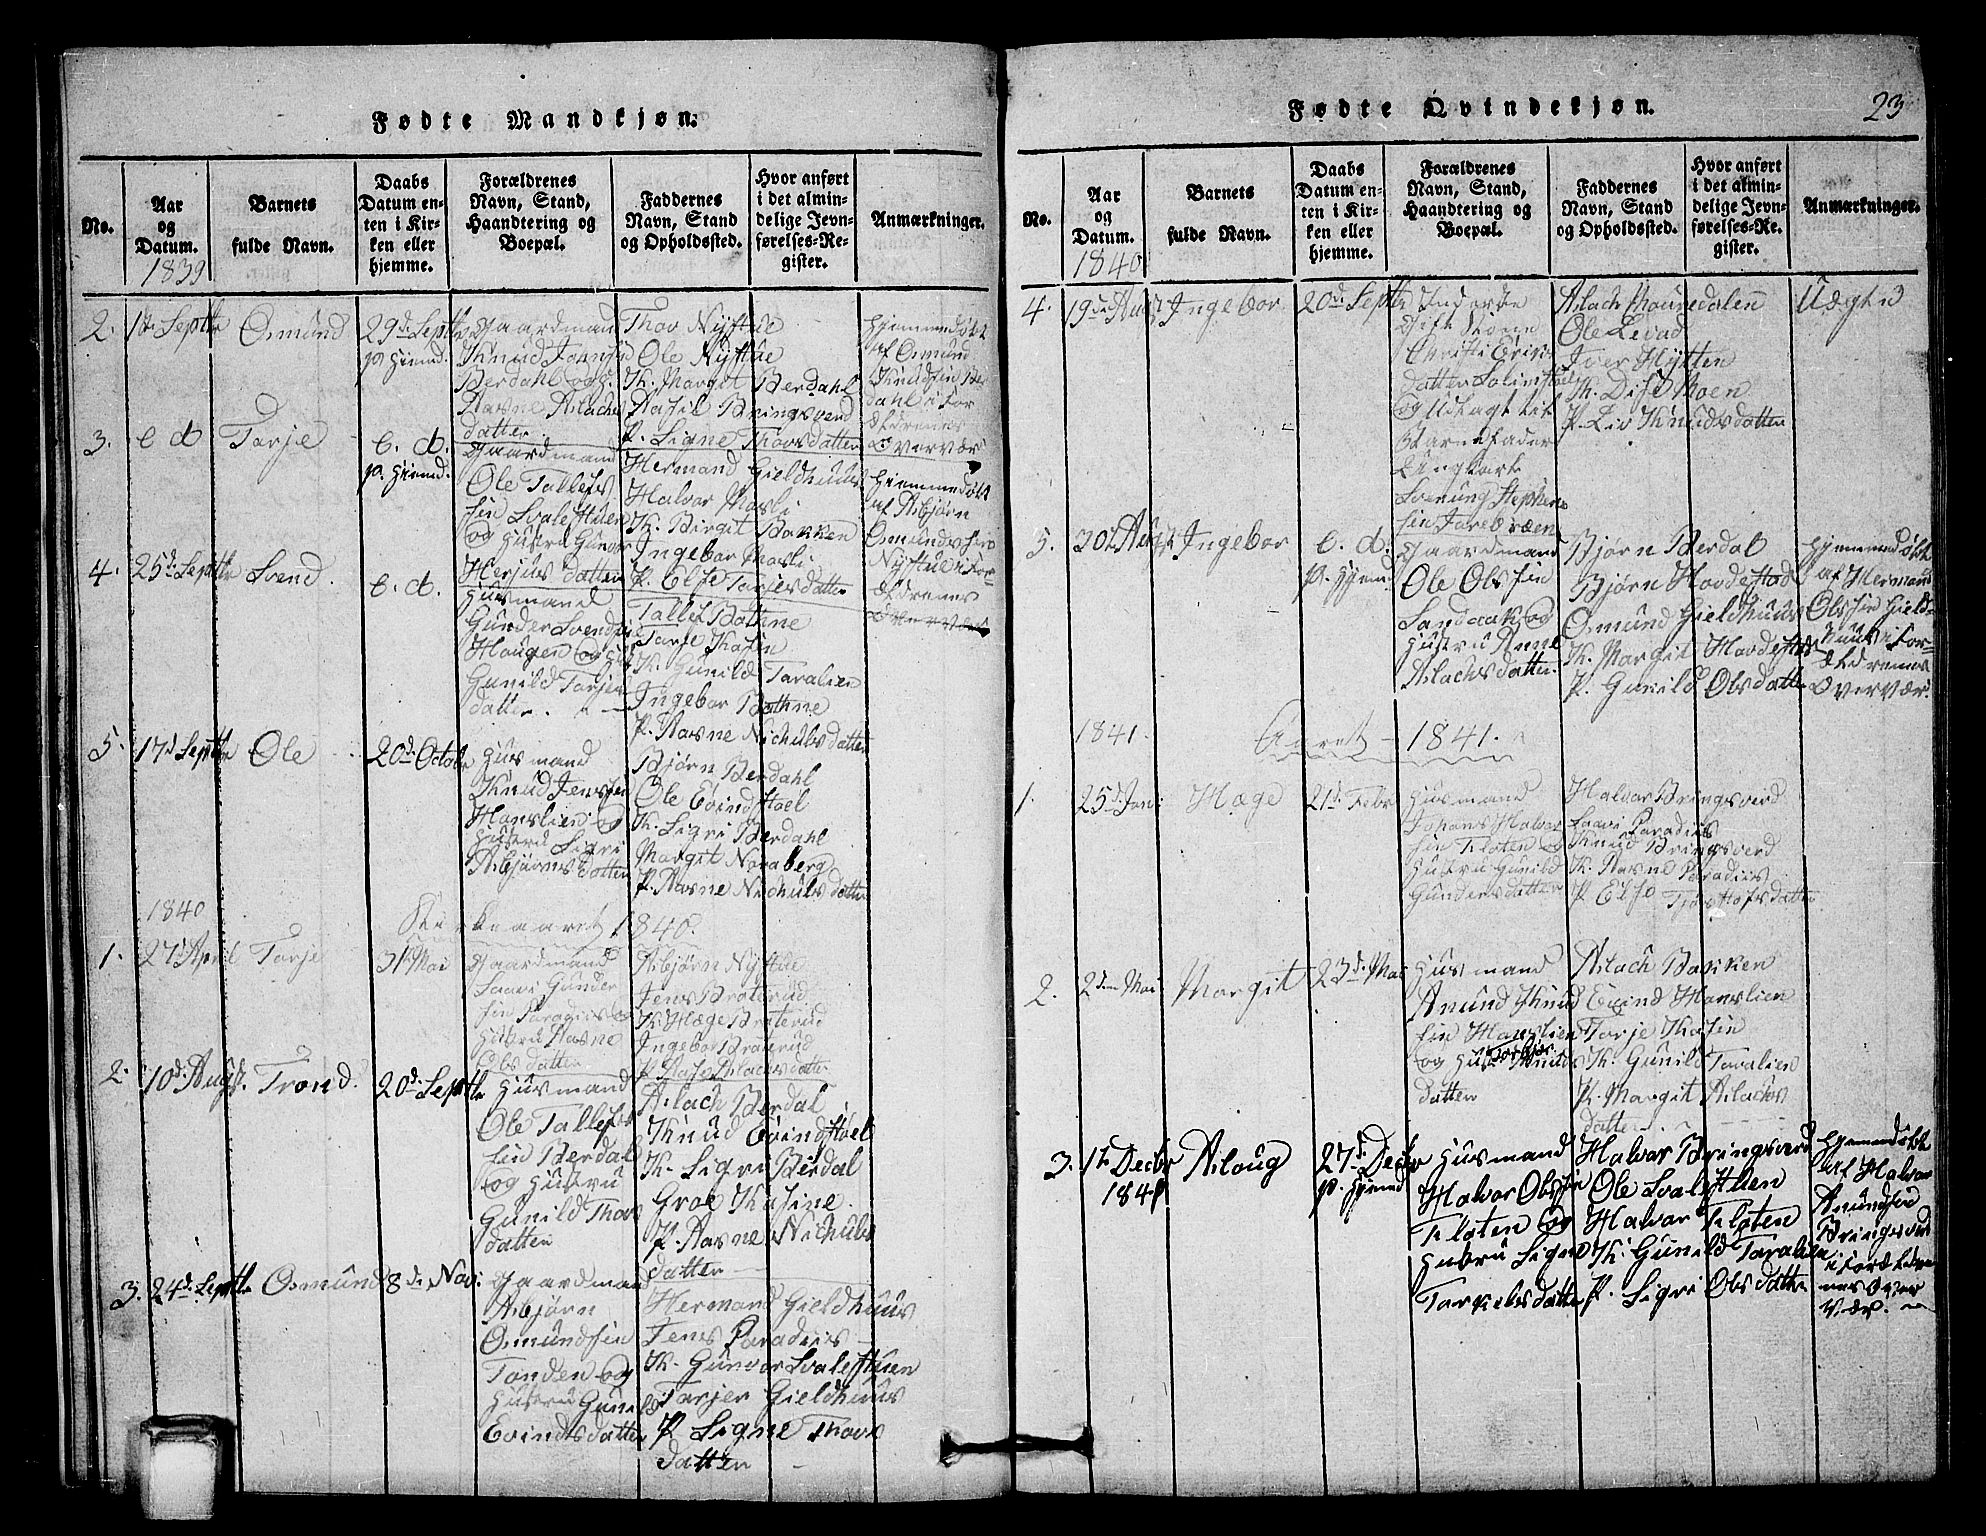 Fødte Mandkjøn.
No.
Aar
og
Datum.
1839
Barnets
fulde Navn.
Daabs
Datum en-
ten i Kir-
ken eller
hjemme.
Forældrenes
Navn, Stand,
Haandtering og
Boepæl.
Faddernes
Navn, Stand
og Opholdssted.
Hvor anført
i det almin-
delige Jevn-
førelses-Re-
gister.
Anmærkninger.
2. 1ste Septbr Osmund
29d. Septbr
p. Hiemd.
Gaardmand
Knud Johnsen
Berdahl og H.
Aasne Aslachs
datter
Thov Nÿstue
Ole Nÿstue
K. Margit Berdahl
Aasil Bringsverd
P. Signe Thovsdatter
Hjemmedøbt
af Osmund
Knudsen Ber
dahl i For
ældrenes
Overvær
3. e d Tarje
e. d.
p. Hiemd.
Gaardmand
Ole Tallefs
sen Svalestuen
og Hustru Gunvor
Herjus datter
Hermand Gieldhuus
Halvor Moesli
K. Birgit Bakken
Ingebor Moesli
P. Else Tarjesdatter
Hjemmedøbt
af Asbjørn
Osmundssen
Nÿstue i For
ældrenes
Overvær
4. 25d. Septbr Svend.
e. d.
Huusmand
Gunder Svendsen
Haugen og H.
Gunild Tarjes
datter.
Tallef Bothne
Tarje Kasin
K. Gunild Taralien
Ingebor Bothne
P. Aasne Nichulsdatter
5. 17d Septbr Ole
20d. Octobr
Huusmand
Knud Jenssen
Hanslien og
Hustru Sigri
Asbjørnsdatter
Bjørn Berdahl
Ole Eivindstoel
K. Sigri Berdahl
Margit Noraberg
P. Aasne Nichulsdatter
1840
Kirkeaaret 1840.
1. 27d April Tarje
31te Mai
Gaardmand
Saavi Gunder
sen Paradiis og
Hustru Aasne
Olsdatter
Asbjørn Nÿstue
Jens Braterud
K. Hæge Braterud
Ingebor Braterud
P. Aase Aslachsdatter
2. 10d. Augst. Trond.
20d. Septbr
Huusmand
Ole Tallefs
sen Berdal
og Hustru
Gunild Thovs
datter
Aslach Berdal
Knud Eivindstøel
K. Sigri Berdal
Groe Kasine.
P. Aasne Nichuls
datter
3. 24d. Septbr Osmund
8de Nov:
Gaardmand
Asbjørn
Osmundsen
Tonden og
Hustru Gunild
Evindsdatter
Hermand Gieldhuus
Jens Paradiis
K. Gunvor Svalestuen
Tarjer Gieldhuus
P. Signe Thovs
datter
Fødte Qvindekjøn.
23
No.
Aar
og
Datum.
1840
Barnets
fulde Navn.
Daabs
Datum en-
ten i Kir-
ken eller
hjemme.
Forældrenes
Navn, Stand,
Haandtering og
Boepæl.
Faddernes
Navn, Stand
og Opholdssted.
Hvor anført
i det almin-
delige Jevn-
førelses-Re-
gister.
Anmærkninger.
4. 19de Aug. Ingebor
20d. Septbr
Christi Eriks
datter
og Udlagt til
Barnefader
Ungkarl
Svenung Stephens
sen
Aslach Mousedalen
Ole Levad
Iver Hÿtten
K. Dise Moen
P. Liv Knudsdatter
Uægte
5. 30te Augst. Ingebor
e. d.
p. Hjemd.
Gaardmand
Ole Olssen
Sandaak og
Hustru Anne
Aslachsdatter
Bjørn Berdal
Bjørn Hovdestad
Osmund Gieldhuus
K. Margit Hovdestad
P. Gunild Olsdatter
Hjemmedøbt
af Hermand
Olssen Gield-
huus i For-
ældrenes
Overvær.
1841.
Aaret 1841.
1. 25d. Jan: Hæge
21d. Febr
Huusmand
Johans Halvor
sen Kloten og
Hustru Gunild
Gundersdatter
Halvor Bringsverd
Saavi Paradiis
Knud Bringsverd
K. Aasne Paradiis
P. Else Tjøstolfsdatter
2. 2den Mai Margit
23d. Mai
Huusmand
Amund Knud
sen Hanslien
og Hust. Torbjør
datter
Aslach Bakken
Evind Hanslien
Tarje Kasin
K. Gunild Taralien
P. Margit Aslachs
datter.
3. 1te Decbr
1841
Aslaug
27d. Decbr
p. Hjemd
Huusmand
Halvor Olssen
Kloten og
Hustru Signe
Tarkelsdatter
Halvor Bringsverd
Ole Svalestuen
Halvor Kloten
K. Gunild Taralien
P. Sigri Olsdatter
Hjemmedøbt
af Halvor
Amundsen
Bringsverd
i Forældre
nes Over
vær.